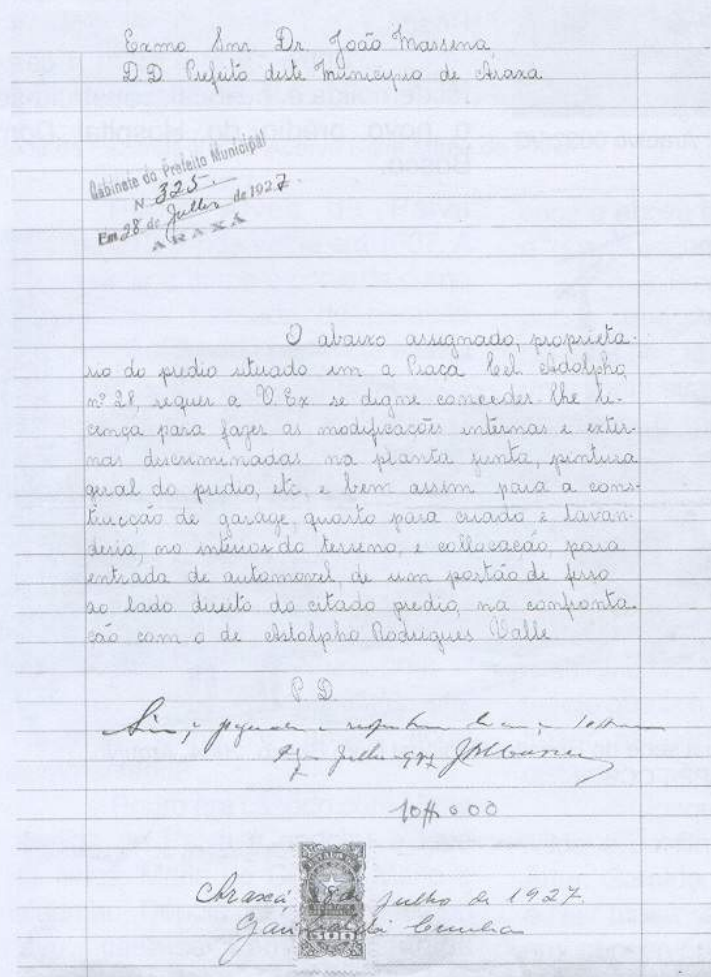 Exmo Snr. Dr. João Massena
D.D. Prefeito deste Municipio de Araxa
Gabinete do Prefeito Municipal
N 325.
Em 28 de Julho de 1927
ARAXÁ
O abaixo assignado, proprieta-
rio do predio situado em a Praça Cel. Adolpho,
nº 28, requer a V. Ex se digne conceder-lhe li-
cença para fazer as modificacões internas e exter-
nas descriminadas na planta junta, pintura
geral do predio, etc, e bem assim para a cons-
trucção de garage, quarto para criado e lavan-
deria, no interior do terreno, e collocação, para
entrada de automovel, de um portão de ferro
ao lado direito do citado predio, na confronta-
cão com o de Astolpho Rodrigues Valle
P. D.
Sim,
Julho 927
10$000
Araxá, 28 de julho de 1927.
Cunha
300